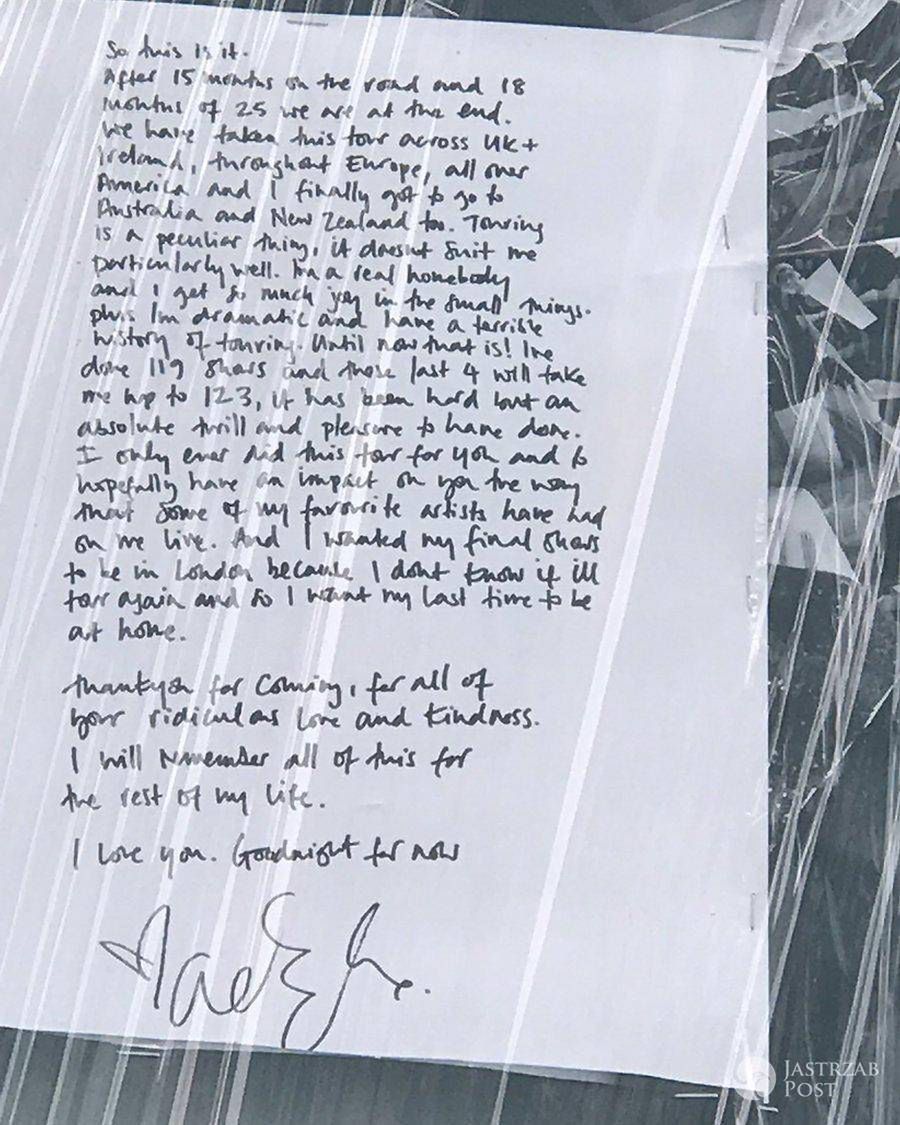 So this is it.
After 15 months on the road and 18
months of 25 we are at the end.
We have taken this tour across UK +
Ireland, throughout Europe, all over
America and I finally got to go to
Australia and New Zealand too. Touring
is a peculiar thing, it doesnt suit me
particularly well. Im a real homebody
and I get so much joy in the small things.
plus Im dramatic and have a terrible
history of touring. Until now that is! Ive
done 119 shows and these last 4 will take
me up to 123, it has been hard but an
absolute thrill and pleasure to have done.
I only ever did this tour for you and to
hopefully have an impact on you the way
that some of my favourite artists have had
on me live. And I wanted my final shows
to be in London because I dont know if ill
tour again and so I want my last time to be
at home.
Thankyou for coming, for all of
your ridiculous love and kindness.
I will remember all of this for
the rest of my life.
I love you. Goodnight for now
Adele.
JASTRZAB
POST